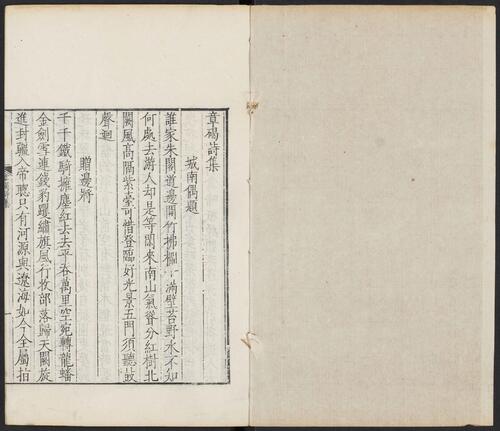 章碣詩集
城南偶題
誰家朱閣道邊開竹拂欄滿壁苔野水不知
何處去游人却是等閒來南山氣聳分紅樹北
闕風高隔紫臺可惜登臨好光景五門須聽鼓
聲迴
贈邊將
千千鐵騎擁塵紅去去平吞萬里空宛轉龍蟠
金劍雪連錢豹躩繡旗風行收部落歸天闕旋
進封疆入帝聰只有河源與遼海如今全屬指